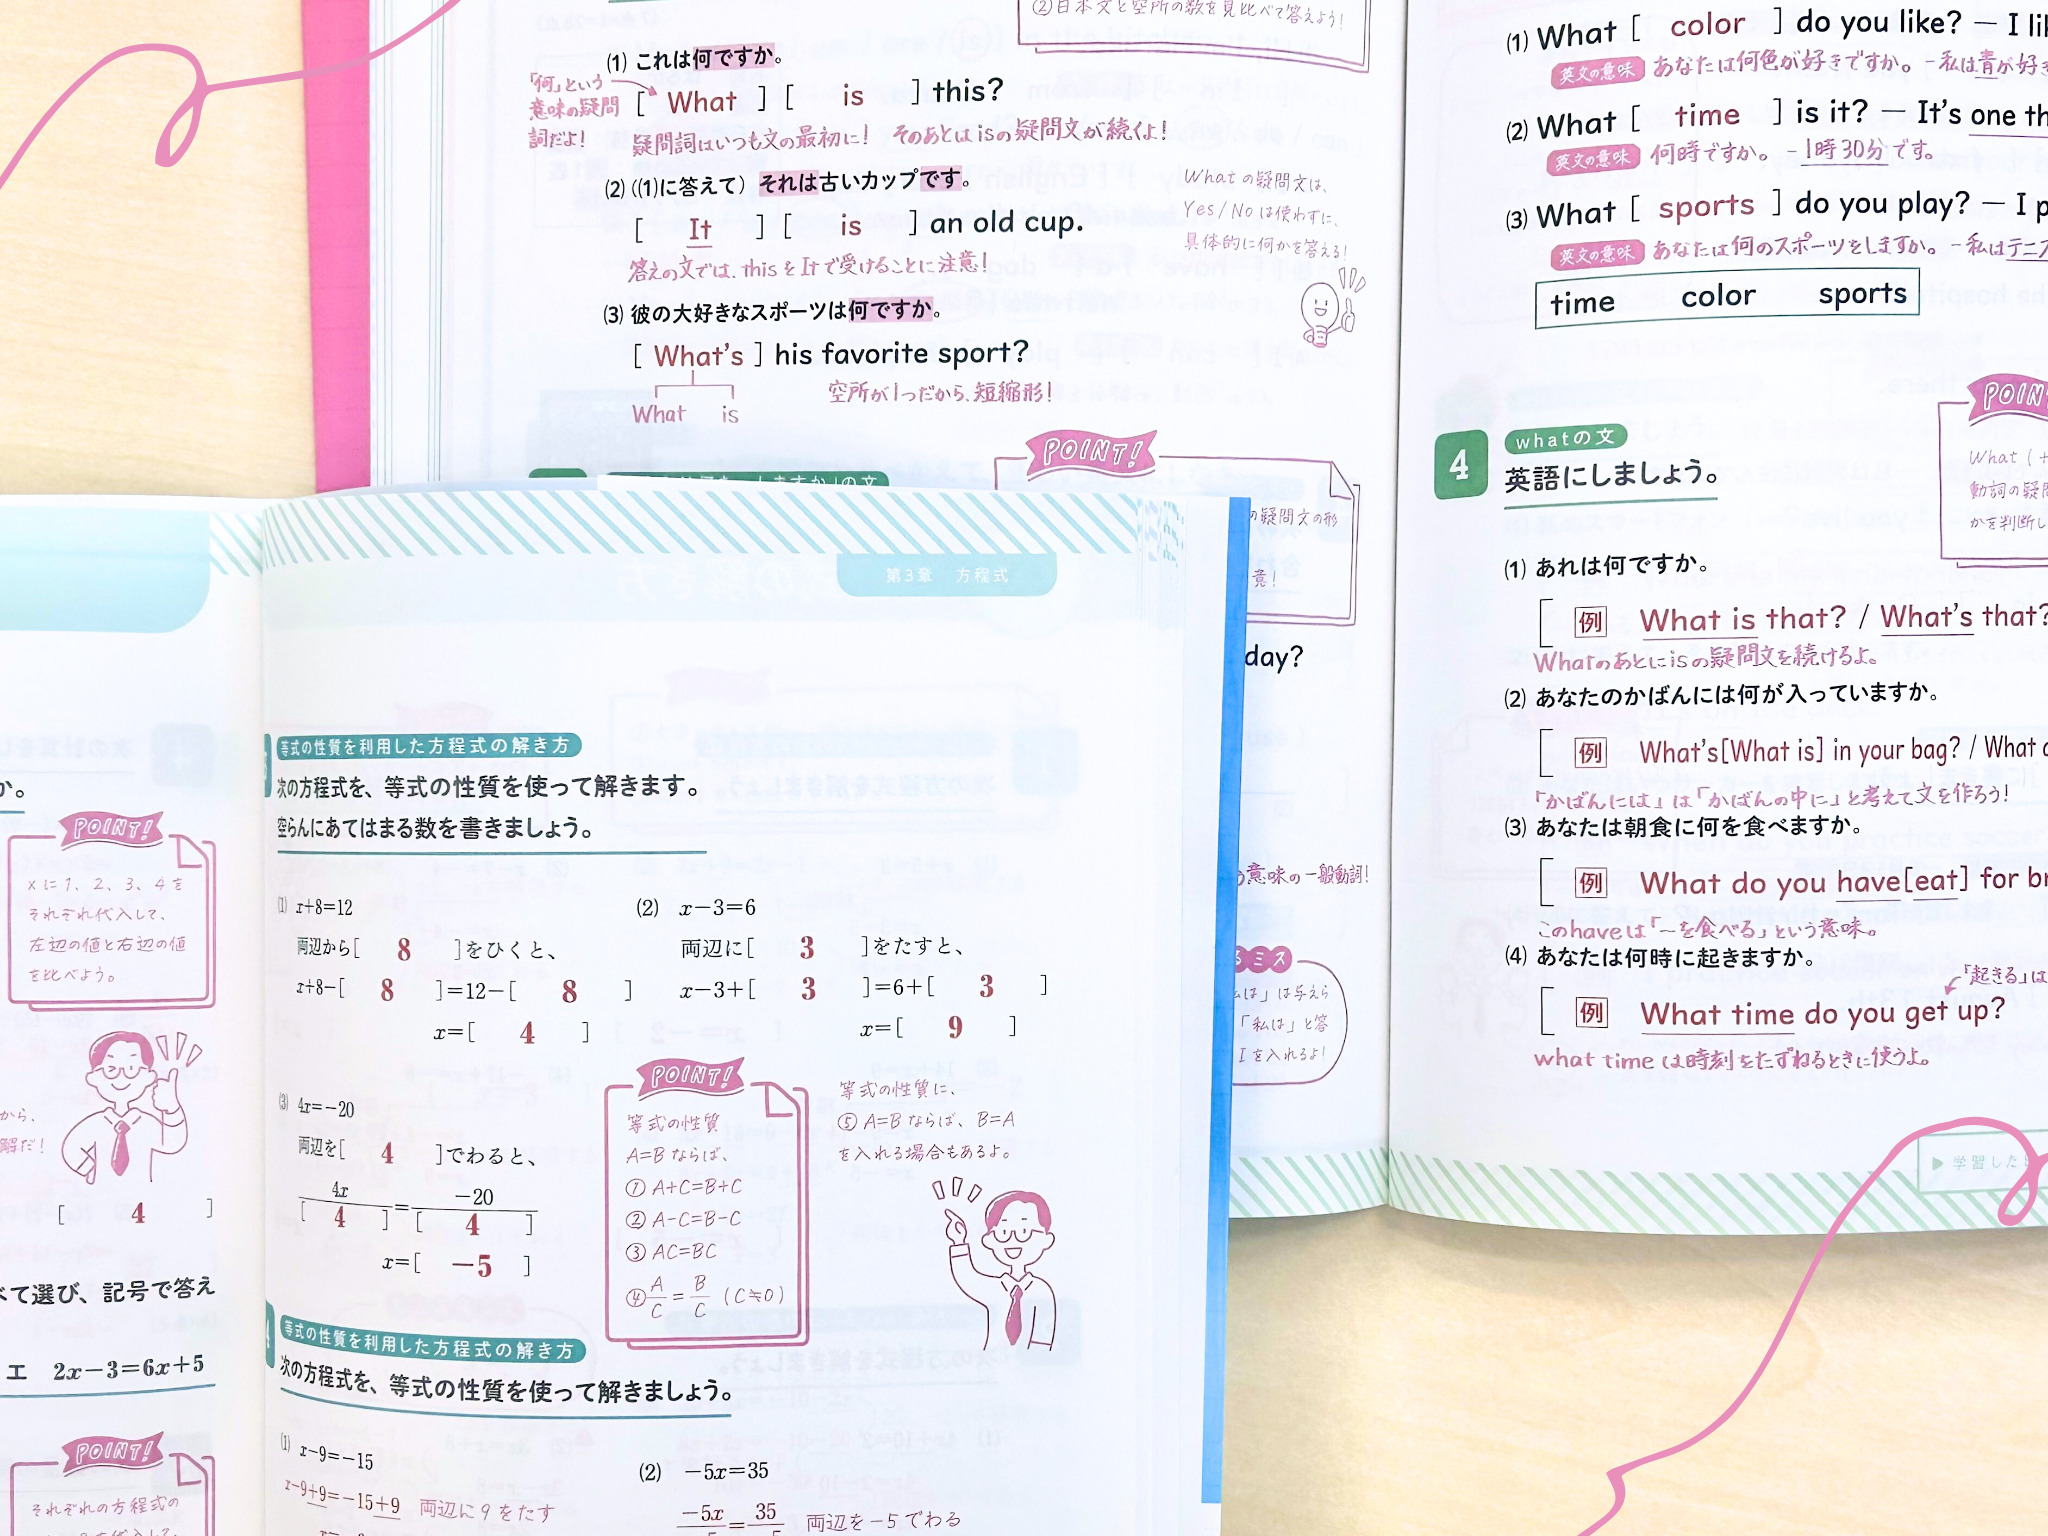 ②日本文と空所の数を見比べて答えよう!
(1) これは何ですか。
「何」という
意味の疑問
詞だよ!
[ What ] [ is ] this?
疑問詞はいつも文の最初に! そのあとはisの疑問文が続くよ!
(2) ((1)に答えて) それは古いカップです。
[ It ] [ is ] an old cup.
答えの文では、thisをItで受けることに注意!
What の疑問文は、
Yes/No は使わずに、
具体的に何かを答える!
(3) 彼の大好きなスポーツは何ですか。
[ What's ] his favorite sport?
What is
空所が1つだから、短縮形!
POINT!
の疑問文の形
意!
day?
う意味の一般動詞!
るミス
は」は与えら
「私は」と答
Iを入れるよ!
(1) What [ color ] do you like? — I
英文の意味 あなたは何色が好きですか。-私は青が好き
(2) What [ time ] is it? — It's one
英文の意味 何時ですか。-1時30分です。
(3) What [ sports ] do you play? — I
英文の意味 あなたは何のスポーツをしますか。-私はテニス
time color sports
4 whatの文
英語にしましょう。
What (+
動詞の疑問
かを判断し
(1) あれは何ですか。
[ 例 What is that? / What's that?
Whatのあとにisの疑問文を続けるよ。
(2) あなたのかばんには何が入っていますか。
[ 例 What's[What is] in your bag? / What
「かばんには」は「かばんの中に」と考えて文を作ろう!
(3) あなたは朝食に何を食べますか。
[ 例 What do you have[eat] for
このhaveは「~を食べる」という意味。
(4) あなたは何時に起きますか。
「起きる」は
[ 例 What time do you get up?
what time は時刻をたずねるときに使うよ。
▶学習した
第3章 方程式
か。
POINT!
xに1、2、3、4を
それぞれ代入して、
左辺の値と右辺の値
を比べよう。
から、
解だ!
[ 4 ]
べて選び、記号で答え
エ 2x−3=6x+5
POINT!
それぞれの方程式の
等式の性質を利用した方程式の解き方
次の方程式を、等式の性質を使って解きます。
空らんにあてはまる数を書きましょう。
(1) x+8=12
両辺から[ 8 ]をひくと、
x+8−[ 8 ]=12−[ 8 ]
x=[ 4 ]
(2) x−3=6
両辺に[ 3 ]をたすと、
x−3+[ 3 ]=6+[ 3 ]
x=[ 9 ]
(3) 4x=−20
両辺を[ 4 ]でわると、
4x −20
[ 4 ]=[ 4 ]
x=[ −5 ]
POINT!
等式の性質
A=B ならば、
① A+C=B+C
② A−C=B−C
③ AC=BC
④ A/C = B/C (C≒0)
等式の性質に、
⑤ A=B ならば、B=A
を入れる場合もあるよ。
4 等式の性質を利用した方程式の解き方
次の方程式を、等式の性質を使って解きましょう。
(1) x−9=−15
x−9+9=−15+9 両辺に9をたす
(2) −5x=35
−5x = 35 両辺を−5でわる